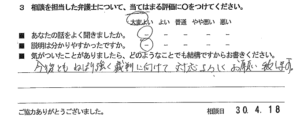 3 相談を担当した弁護士について、当てはまる評価に○をつけてください。
大変よい よい 普通 やや悪い 悪い
■ あなたの話をよく聞きましたか。 － － － － －
■ 説明は分かりやすかったですか。 － － － － －
■ 気がついたことがありましたら、どのようなことでも結構ですからお書きください。
今後ともねばり強く裁判に向けて対応よろしくお願い致します。
ご協力ありがとうございました。 相談日 30.4.18